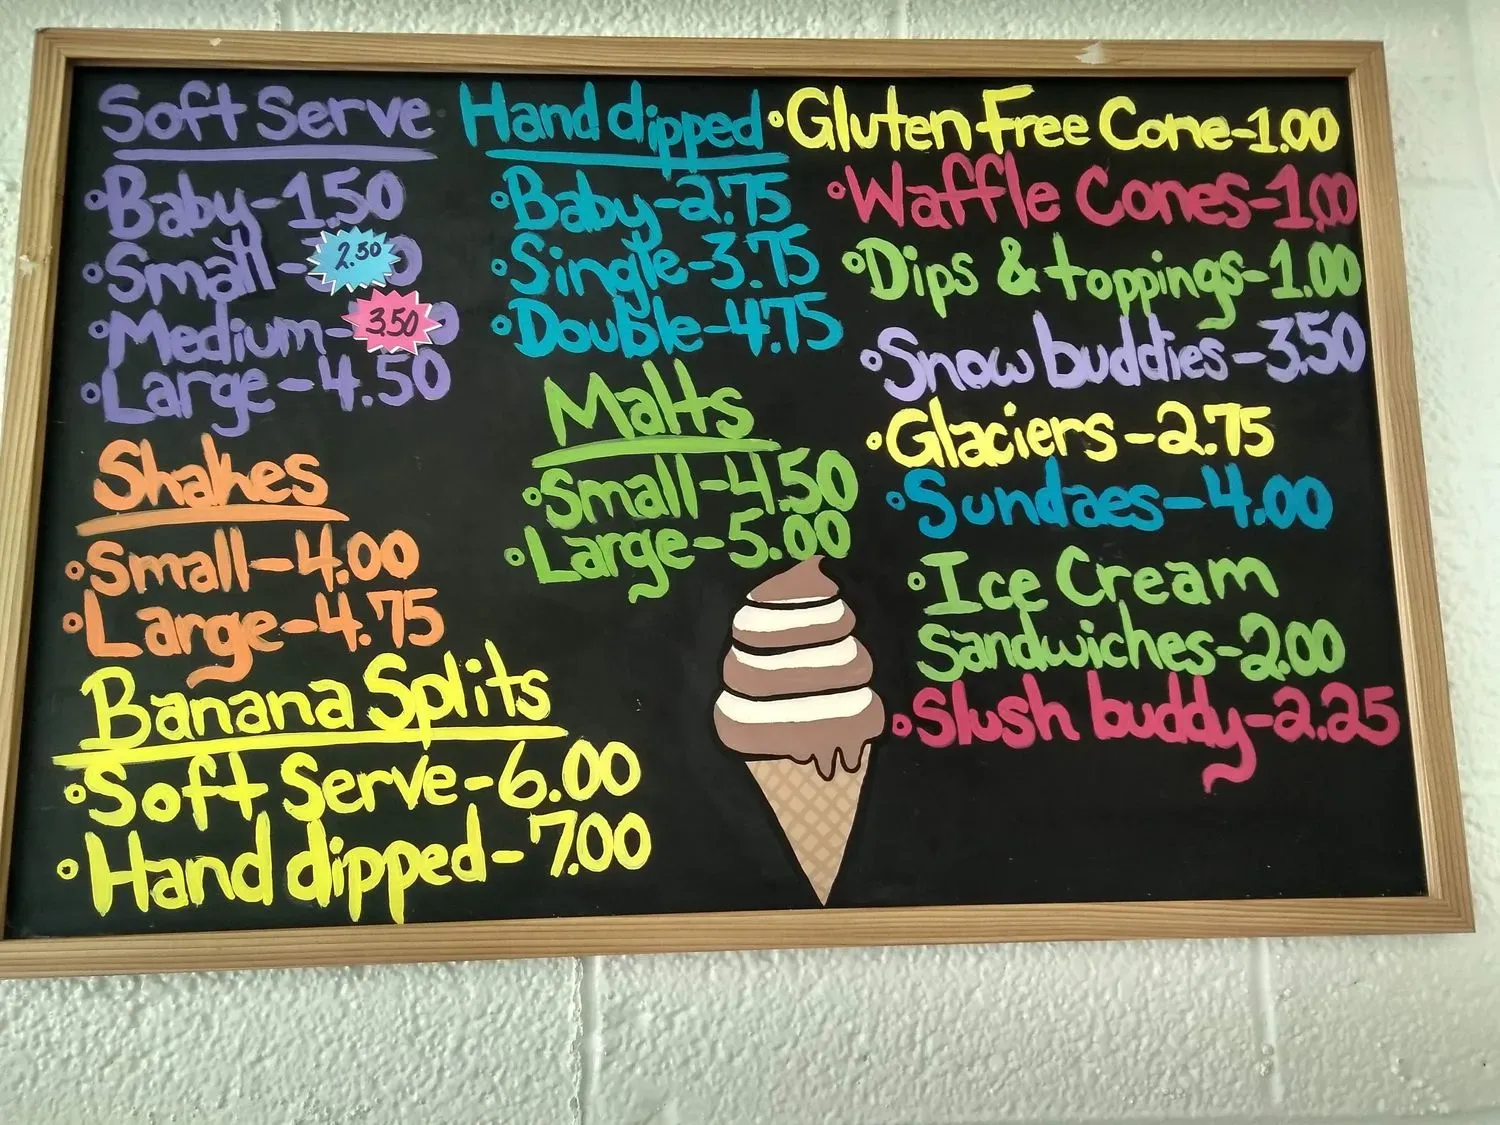 Soft Serve
°Baby-1.50
°Small-2.50
°Medium-3.50
°Large-4.50
Shakes
°Small-4.00
°Large-4.75
Banana Splits
°Soft Serve-6.00
°Hand dipped-7.00
Hand dipped
°Baby-2.75
°Single-3.75
°Double-4.75
Malts
°Small-4.50
°Large-5.00
°Gluten Free Cone-1.00
°Waffle Cones-1.00
°Dips & toppings-1.00
°Snow buddies-3.50
°Glaciers-2.75
°Sundaes-4.00
°Ice Cream
Sandwiches-2.00
°Slush buddy-2.25